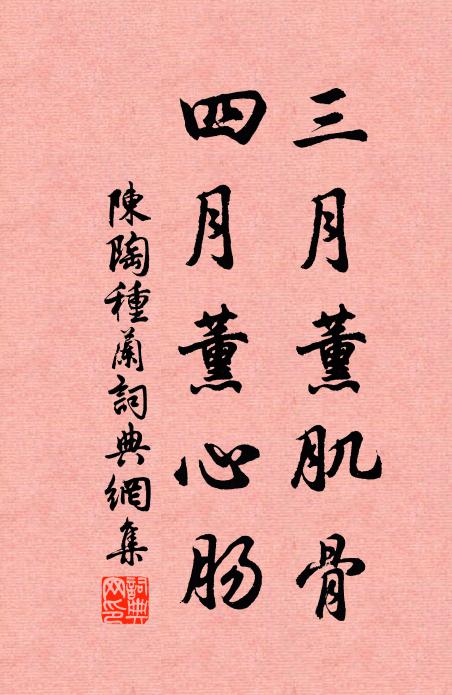 三月薰肌骨
四月薰心肠
陳陶種蘭詞典網集
詞典網印